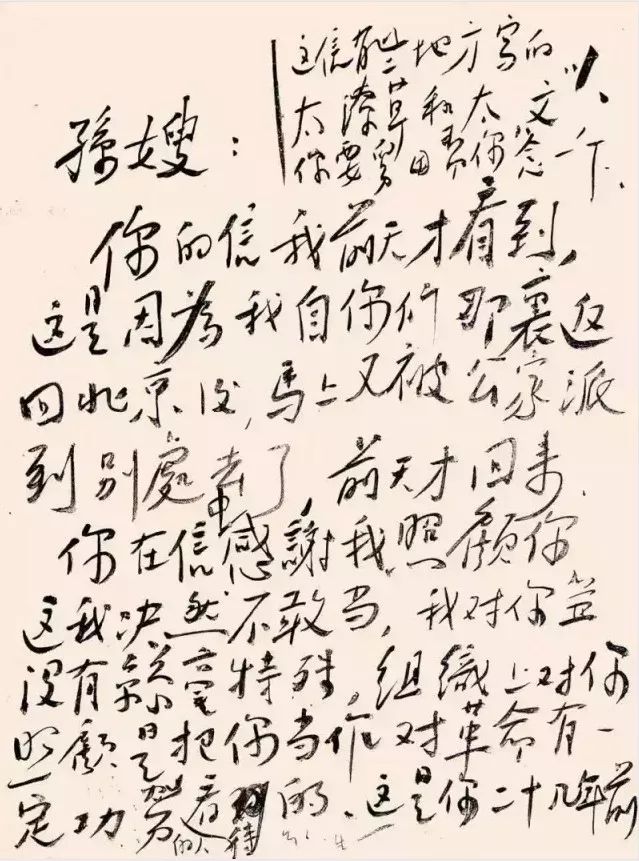 这信有些地方写的
太潦草和太文
你要
你念一下．
孫嫂：
你的信我前天才看到，
这是因為我自你们那裏返
回北京后，馬上又被公家派
到别處去了，前天才回来．
你在信中感謝我照顧你
这我决然不敢当，我对你並
没有絲毫特殊，组織上对你
照顧是把你当作对革命有一
定功劳的人看待的．这是你二十几年前